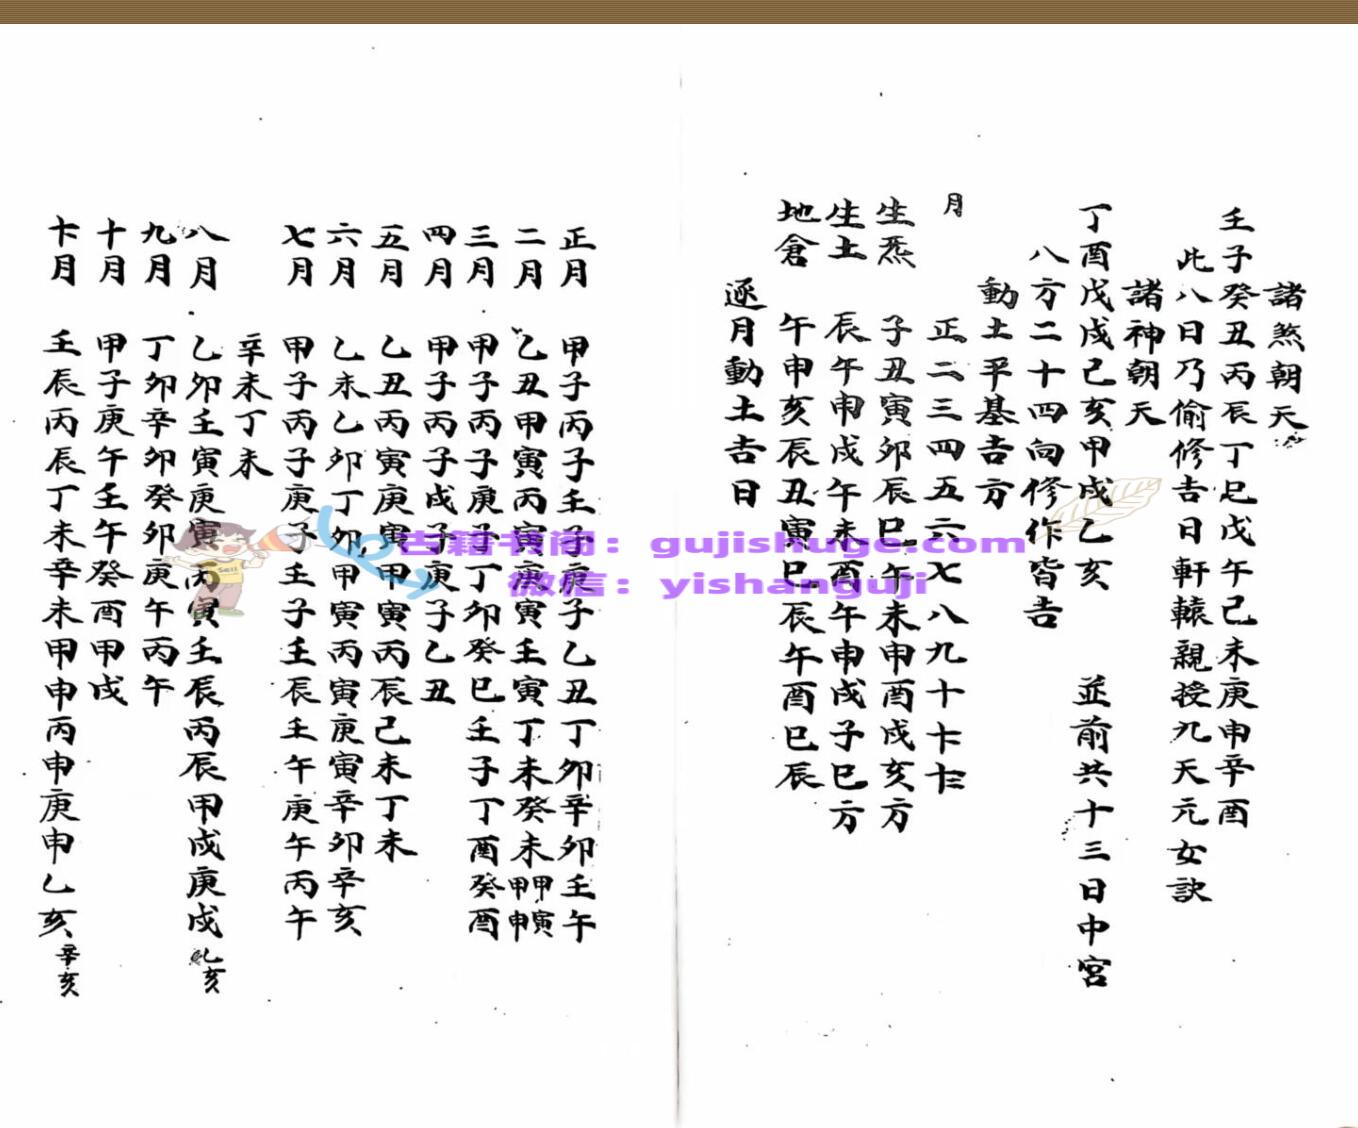 諸煞朝天
壬子癸丑丙辰丁巳戊午己未庚申辛酉
此八日乃偷修吉日軒轅親授九天元女訣
諸神朝天
丁酉戊戌己亥甲戌乙亥 並前共十三日中宮
八方二十四向修作皆吉
動土平基吉方
月 正二三四五六七八九十十一十二
生炁 子丑寅卯辰巳午未申酉戌亥方
生土 辰午申戌午未酉午申戌子巳方
地倉 午申亥辰丑寅巳辰午酉巳辰
逐月動土吉日
正月 甲子丙子壬子庚子乙丑丁卯辛卯壬午
二月 乙丑甲寅丙寅庚寅壬寅丁未癸未甲寅甲申
三月 甲子丙子庚子丁卯癸巳壬子丁酉癸酉
四月 甲子丙子戊子庚子乙丑
五月 乙丑丙寅庚寅甲寅丙辰己未丁未
六月 乙未乙卯丁卯甲寅丙寅庚寅辛卯辛亥
七月 甲子丙子庚子壬子壬辰壬午庚午丙午
辛未丁未
八月 乙卯壬寅庚寅丙寅壬辰丙辰甲戌庚戌乙亥
九月 丁卯辛卯癸卯庚午丙午
十月 甲子庚午壬午癸酉甲戌
十一月 壬辰丙辰丁未辛未甲申丙申庚申乙亥辛亥
古籍书阁：gujishuge.com
微信：yishanguji